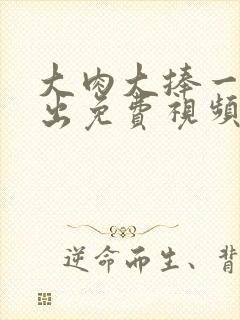 大肉大捧一
出免费視頻
逆命而生、背